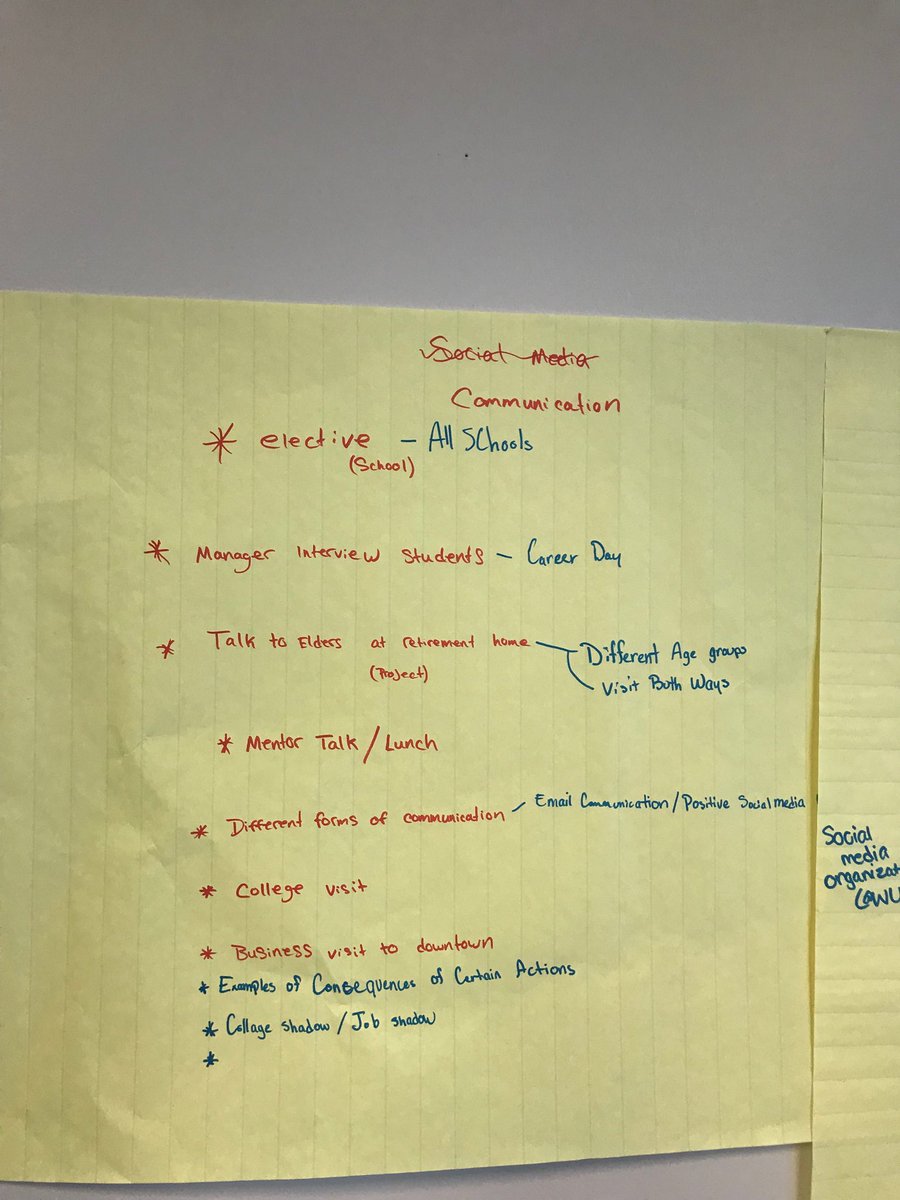 Social Media
Communication
* elective — All SChools
(School)
* Manager Interview Students — Career Day
* Talk to Elders at retirement home — Different Age groups
(Project) Visit Both Ways
* Mentor Talk / Lunch
* Different forms of communication — Email Communication / Positive Social media
* College visit
* Business visit to downtown
* Examples of Consequences of Certain Actions
* Collage shadow / Job shadow
*
Social
media
organizat